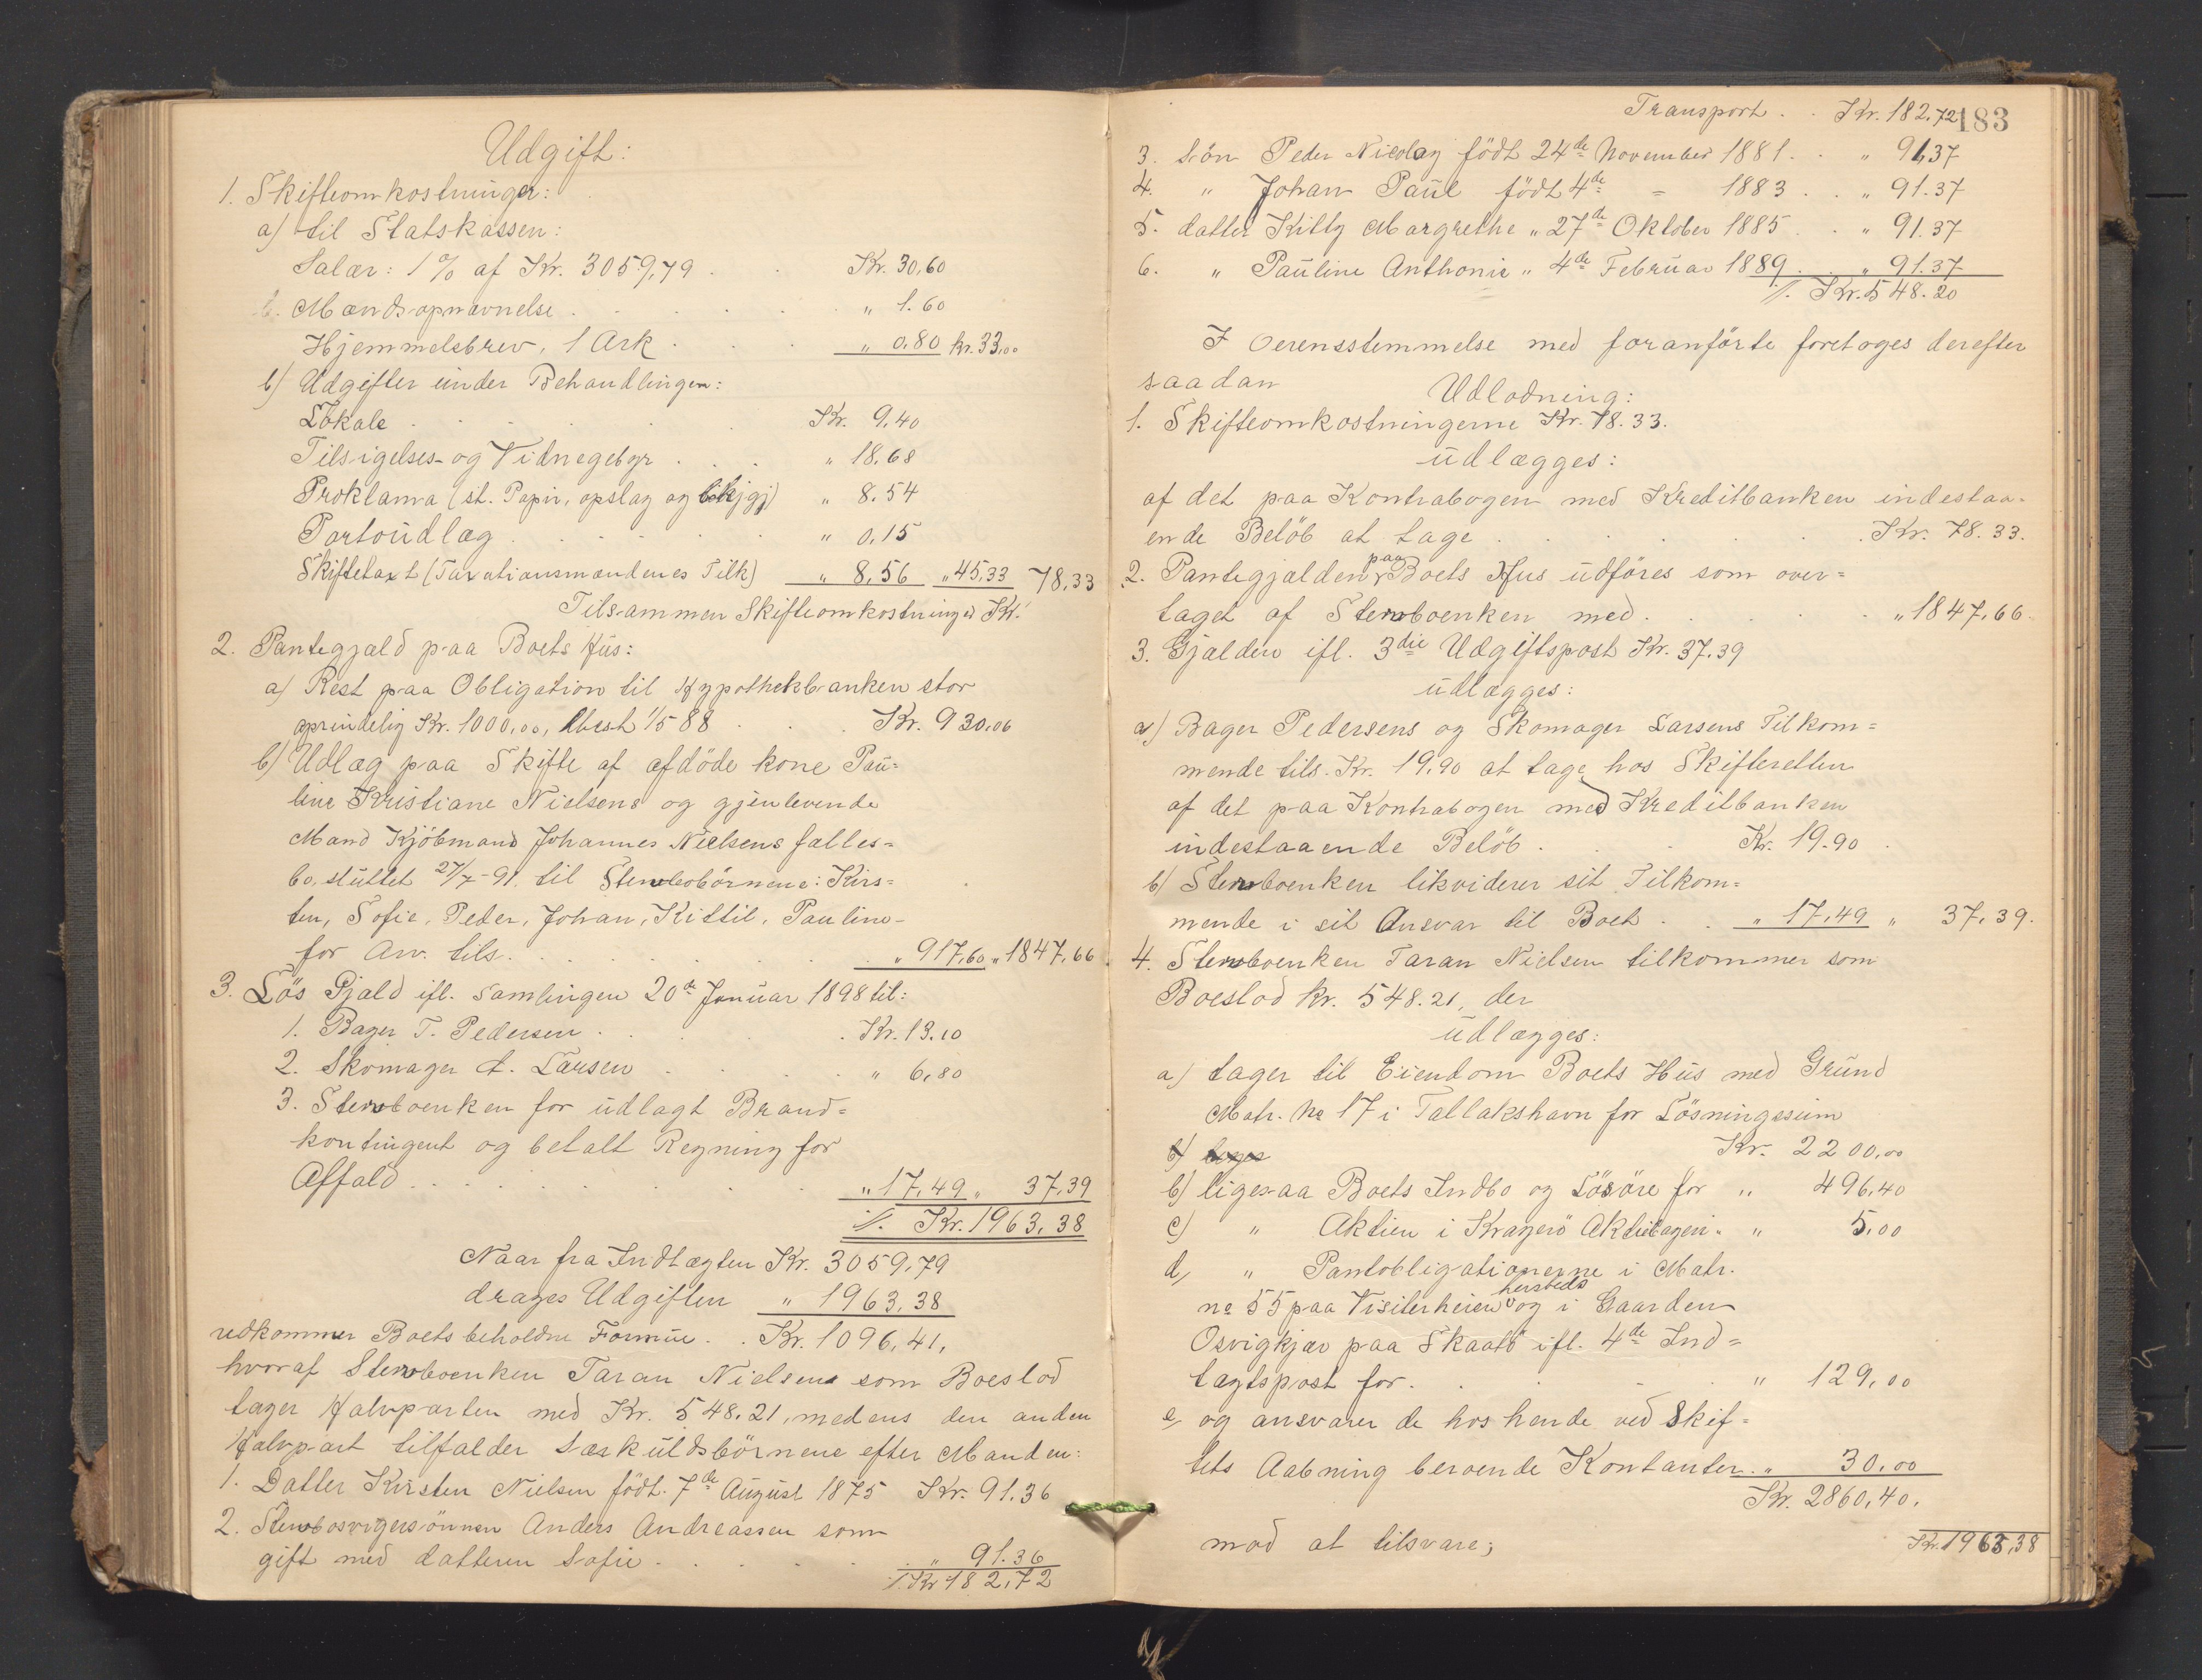 Udgift:
1. Skifteomkostninger:
a) til Statskassen:
Salær: 1% af Kr. 3059,79 . . Kr. 30,60
Mændsopnævnelse . . . . . " 1.60
Hjemmelsbrev, 1 Ark . . . " 0.80 Kr. 33,00
b) Udgifter under Behandlingen:
Lokale . . . . . . Kr. 9,40
Tilsigelses- og Vidnegebyr . . . " 18,68
Proklama (st. Papir, opslag og bkjgj) " 8.54
Portoudlæg . . . . . . " 0,15
Skiftetaxt (Taxationsmændenes Tilk) " 8,56 " 45,33 78,33
Tilsammen Skifteomkostninger Kr.
2. Pantegjæld paa Boets Hus:
a) Rest paa Obligation til Hypothekbanken stor
oprindelig Kr. 1000,00, thest 1/5 88 . . Kr. 930,06
b) Udlæg paa Skifte af afdöde kone Pau=
line Kristiane Nielsens og gjenlevende
Mand Kjöbmand Johannes Nielsens fælles=
bo, sluttet 27/7-91. til Stervbobörnene: Kirs=
ten, Sofie, Peder, Johan, Kittil, Pauline-
for Arv. tils. . . . . . . " 917,60 " 1847,66
3. Lös Gjæld ifl. Samlingen 20de Januar 1898 til:
1. Bager T. Pedersen . . . . Kr. 13.10
2. Skomager A. Larsen . . . . " 6,80
3. Stervboenken for udlagt Brand=
kontingent og betalt Regning for
Affald . . . . . . . " 17,49 " 37,39
./. Kr. 1963,38
Naar fra Indtægten Kr. 3059,79
drages Udgiften " 1963,38
udkommer Boets beholdne Formue . . Kr. 1096,41,
hvoraf Stervboenken Taran Nielsen som Boeslod
tager Halvparten med Kr. 548.21, medens den anden
Halvpart tilfalder Særkuldsbörnene efter Manden:
1. Datter Kirsten Nielsen födt 7de August 1875 Kr. 91.36
2. Stervbosvigersönnen Anders Andreassen som
gift med datteren Sofie . . . . . " 91.36
./. Kr 182,72
Transport . . Kr. 182,72
183
3. Sön Peder Nicolay födt 24de November 1881 . . " 91,37
4. " Johan Paul födt 4de = 1883 . . " 91.37
5. datter Kitty Margrethe " 27de Oktober 1885 . . " 91.37
6. " Pauline Anthonie " 4de Februar 1889 . . " 91.37
./. Kr. 548.20
I Oerensstemmelse med foranförte foretages derefter
saadan
Udlodning:
1. Skifteomkostningerne Kr. 78.33.
udlægges:
af det paa Kontrabogen med Kreditbanken indestaa-
ende Belöb at tage . . . . . . Kr. 78.33.
2. Pantegjælden paa Boets Hus udföres som over=
taget af Stervboenken med . . . . " 1847,66.
3. Gjælden ifl. 3die Udgiftspost Kr. 37.39
udlægges:
a) Bager Pedersens og Skomager Larsens Tilkom=
mende tils. Kr. 19,90 at tage hos Skifteretten
af det paa Kontrabogen med Kreditbanken
indestaaende Belöb . . . Kr. 19.90
b) Stervboenken likviderer sit Tilkom=
mende i sit Ansvar til Boet . . " 17,49 " 37,39.
4. Stervboenken Taran Nielsen tilkommer som
Boeslod kr. 548.21, der
udlægges:
a) tager til Eiendom Boets Hus med Grund
Matr. No 17 i Tallakshavn for Lösningssum
Kr. 2200,00
b) ligesaa Boets Indbo og Lösöre for " 496,40
c) " Aktien i Kragerö Aktiebageri " " 5,00
d) " Pantobligationerne i Matr.
no 55 paa Visiterheien hersteds og i Gaarden
Osvigkjær paa Skaatö ifl. 4de Ind=
tægtspost for . . . . . " 129,00
e) og ansvarer de hos hende ved Skif=
tets Aabning beroende Kontanter . " 30,00
Kr. 2860,40.
mod at tilsvare; Kr. 1963,38